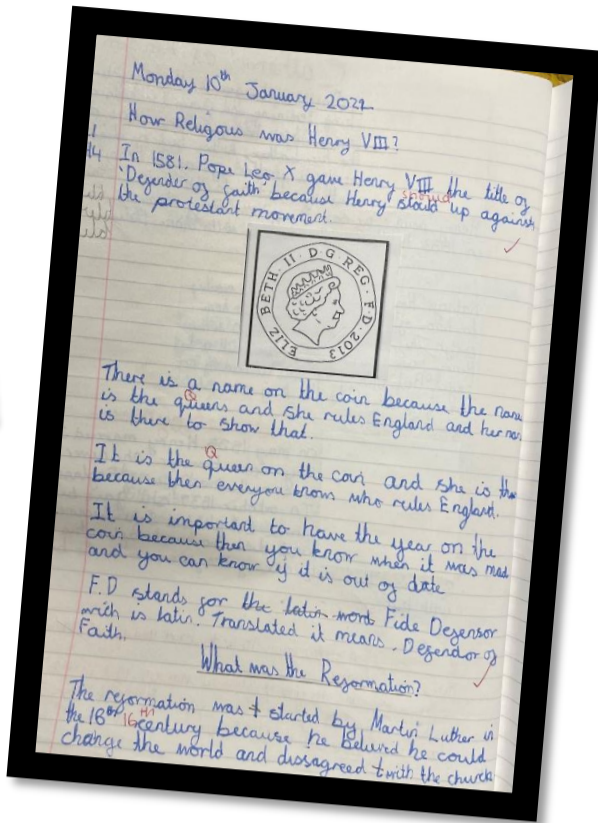 Monday 10th January 2022
How Religious was Henry VIII?
In 1581. Pope Leo X gave Henry VIII the title of
'Defender of faith' because Henry stould up against
stood
the protestant movement.
ELIZ BETH·II·D·G·REG·F·D·2013
There is a name on the coin because the name
is the queens and she rules England and her
Q
is there to show that.
Q
It is the queen on the coin and she is
because then everyone knows who rules England.
It is important to have the year on the
coin because then you know when it was mad
and you can know if it is out of date
F.D stands for the latin word Fide Defensor
wich is latin. Translated it means. Defendor of
Faith.
What was the Reformation?
The reformation was started by Martin Luther in
the 18th 16th century because he belived he could
change the world and dissagreed with the church